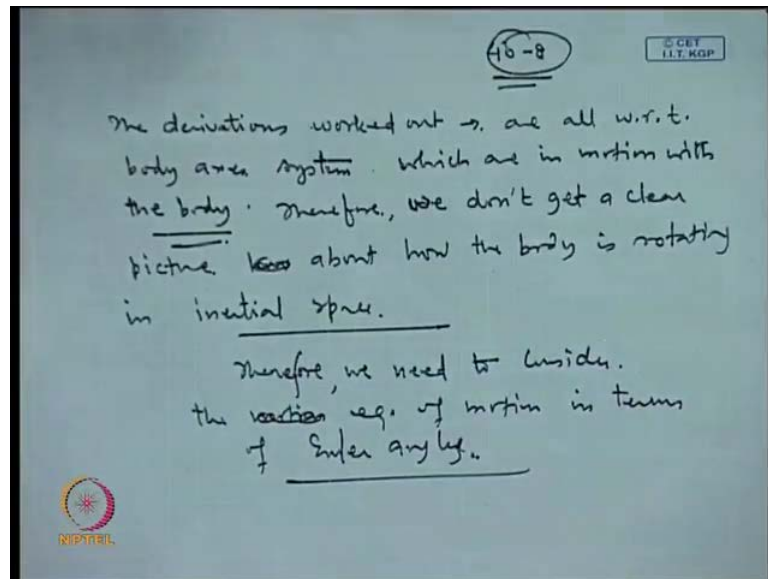 40-8
© CET
I.I.T. KGP
The derivations worked out → are all w.r.t.
body axes system. which are in motion with
the body. Therefore, we don't get a clear
picture about how the body is rotating
in inertial space.
Therefore, we need to consider.
the eq. of motion in terms
of Euler angles..
NPTEL